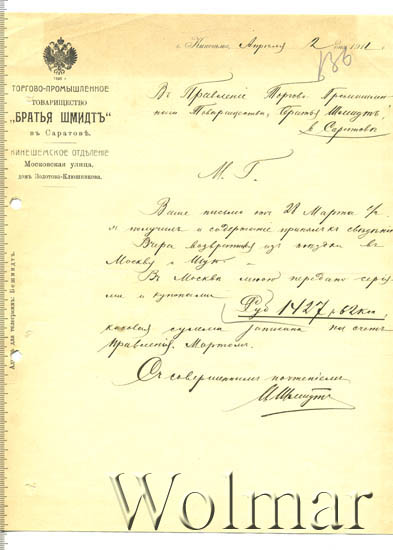 г. Кинешма, Апреля 2 дня 1911 г.
ТОРГОВО-ПРОМЫШЛЕННОЕ
ТОВАРИЩЕСТВО
„БРАТЬЯ ШМИДТЪ“
въ Саратовѣ.
КИНЕШЕМСКОЕ ОТДѢЛЕНІЕ
Московская улица,
домъ Золотова-Клюшникова.
Адресъ для телеграммъ:
Въ Правленіе Торгово Промышлен-
наго Товарищества „Братья Шмидтъ“
в Саратовѣ
М. Г.
Ваше письмо отъ 28 Марта с/г
я получилъ и содержаніе принялъ къ свѣдѣнію
Вчера возвратился изъ поѣздки въ
Москву и Шую
Въ Москвѣ мною передано
и купонами
Руб 1427 р 62 коп
каковая сумма записана на счетъ
Правленія Мартомъ.
Съ совершеннымъ почтеніемъ
Шмидтъ
Wolmar